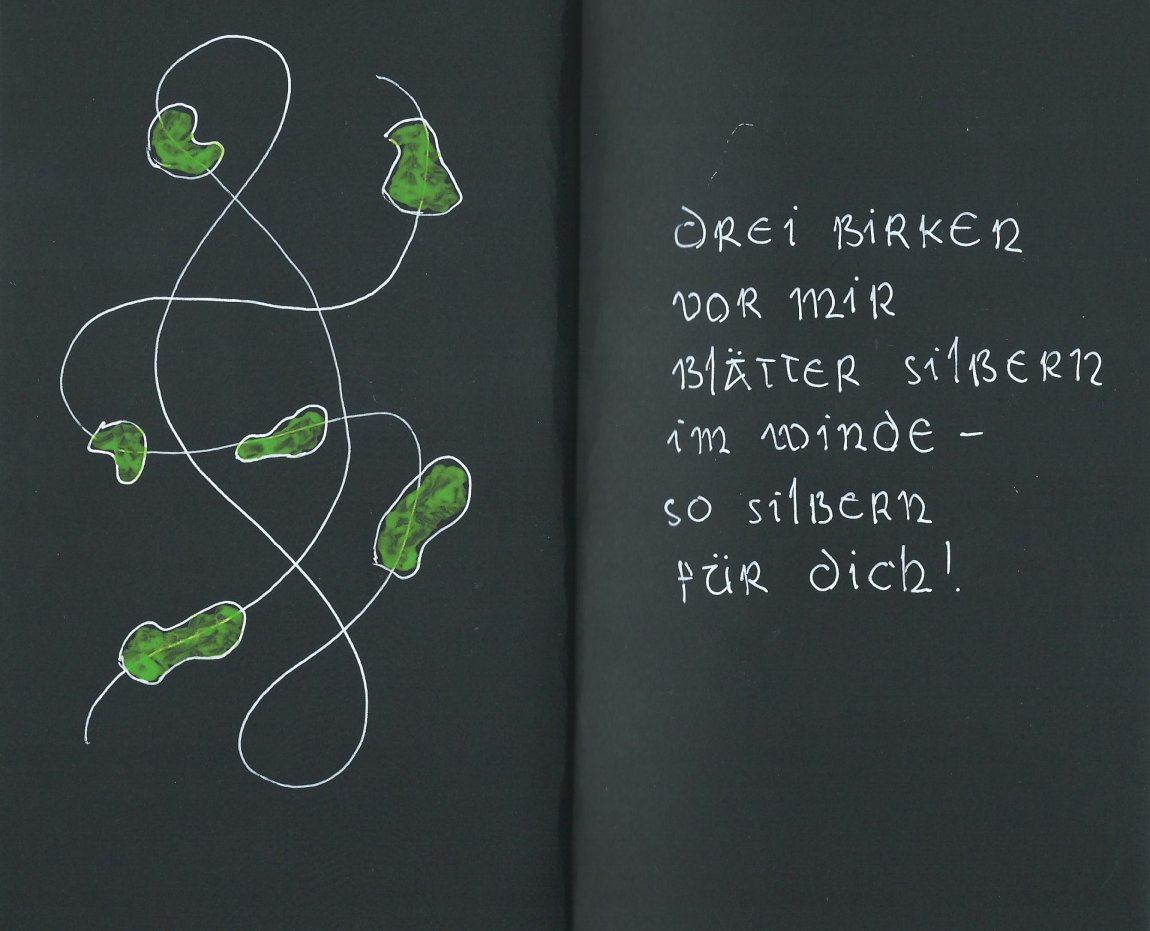 DREI BIRKEN
VOR MIR
BLÄTTER SILBERN
IM WINDE –
SO SILBERN
FÜR DICH!